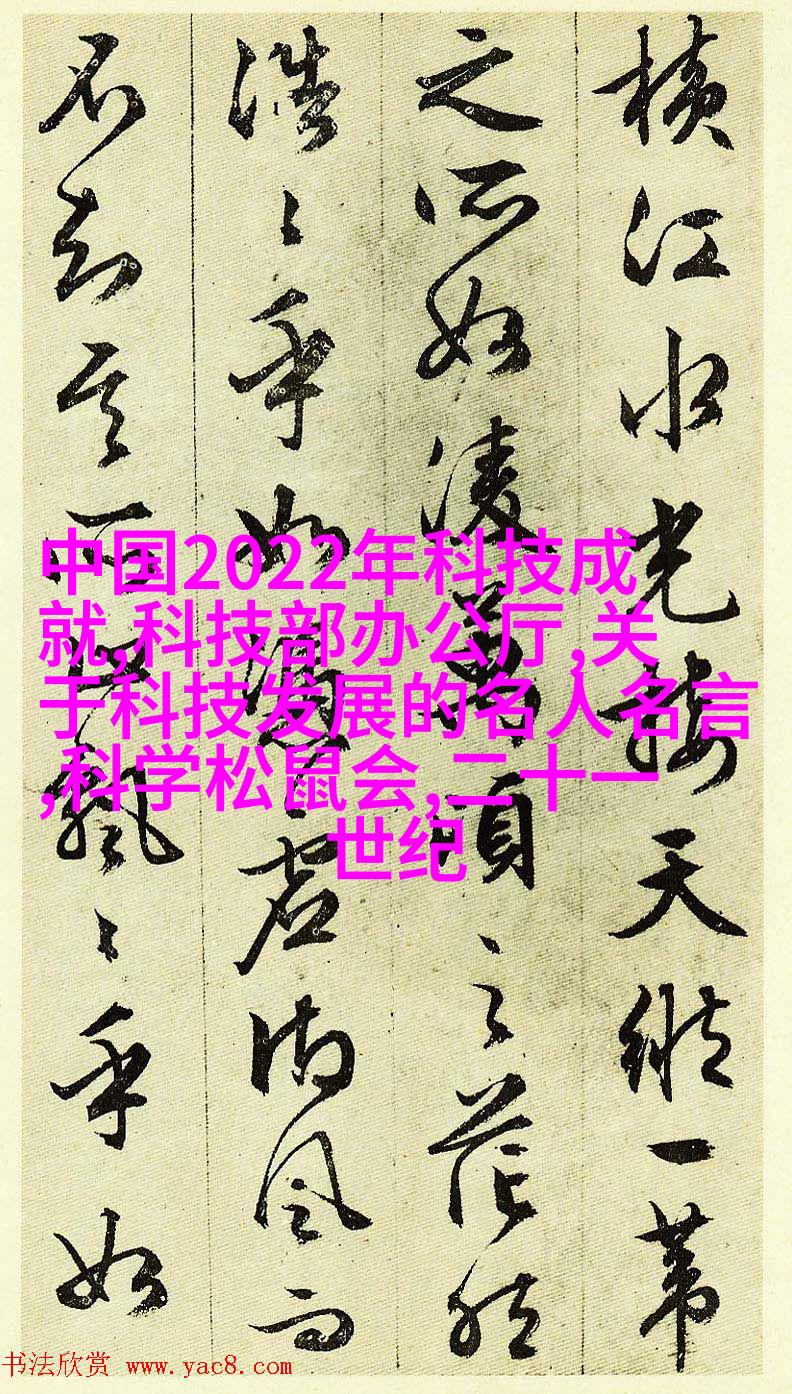 橫江水光接天縱一葦
之所如凌萬頃之茫然
浩〻乎如馮虛御風而
不知其所止飄〻乎如
中国2022年科技成
就,科技部办公厅,关
于科技发展的名人名言
,科学松鼠会,二十一
世纪
书法欣赏 www.yac8.com